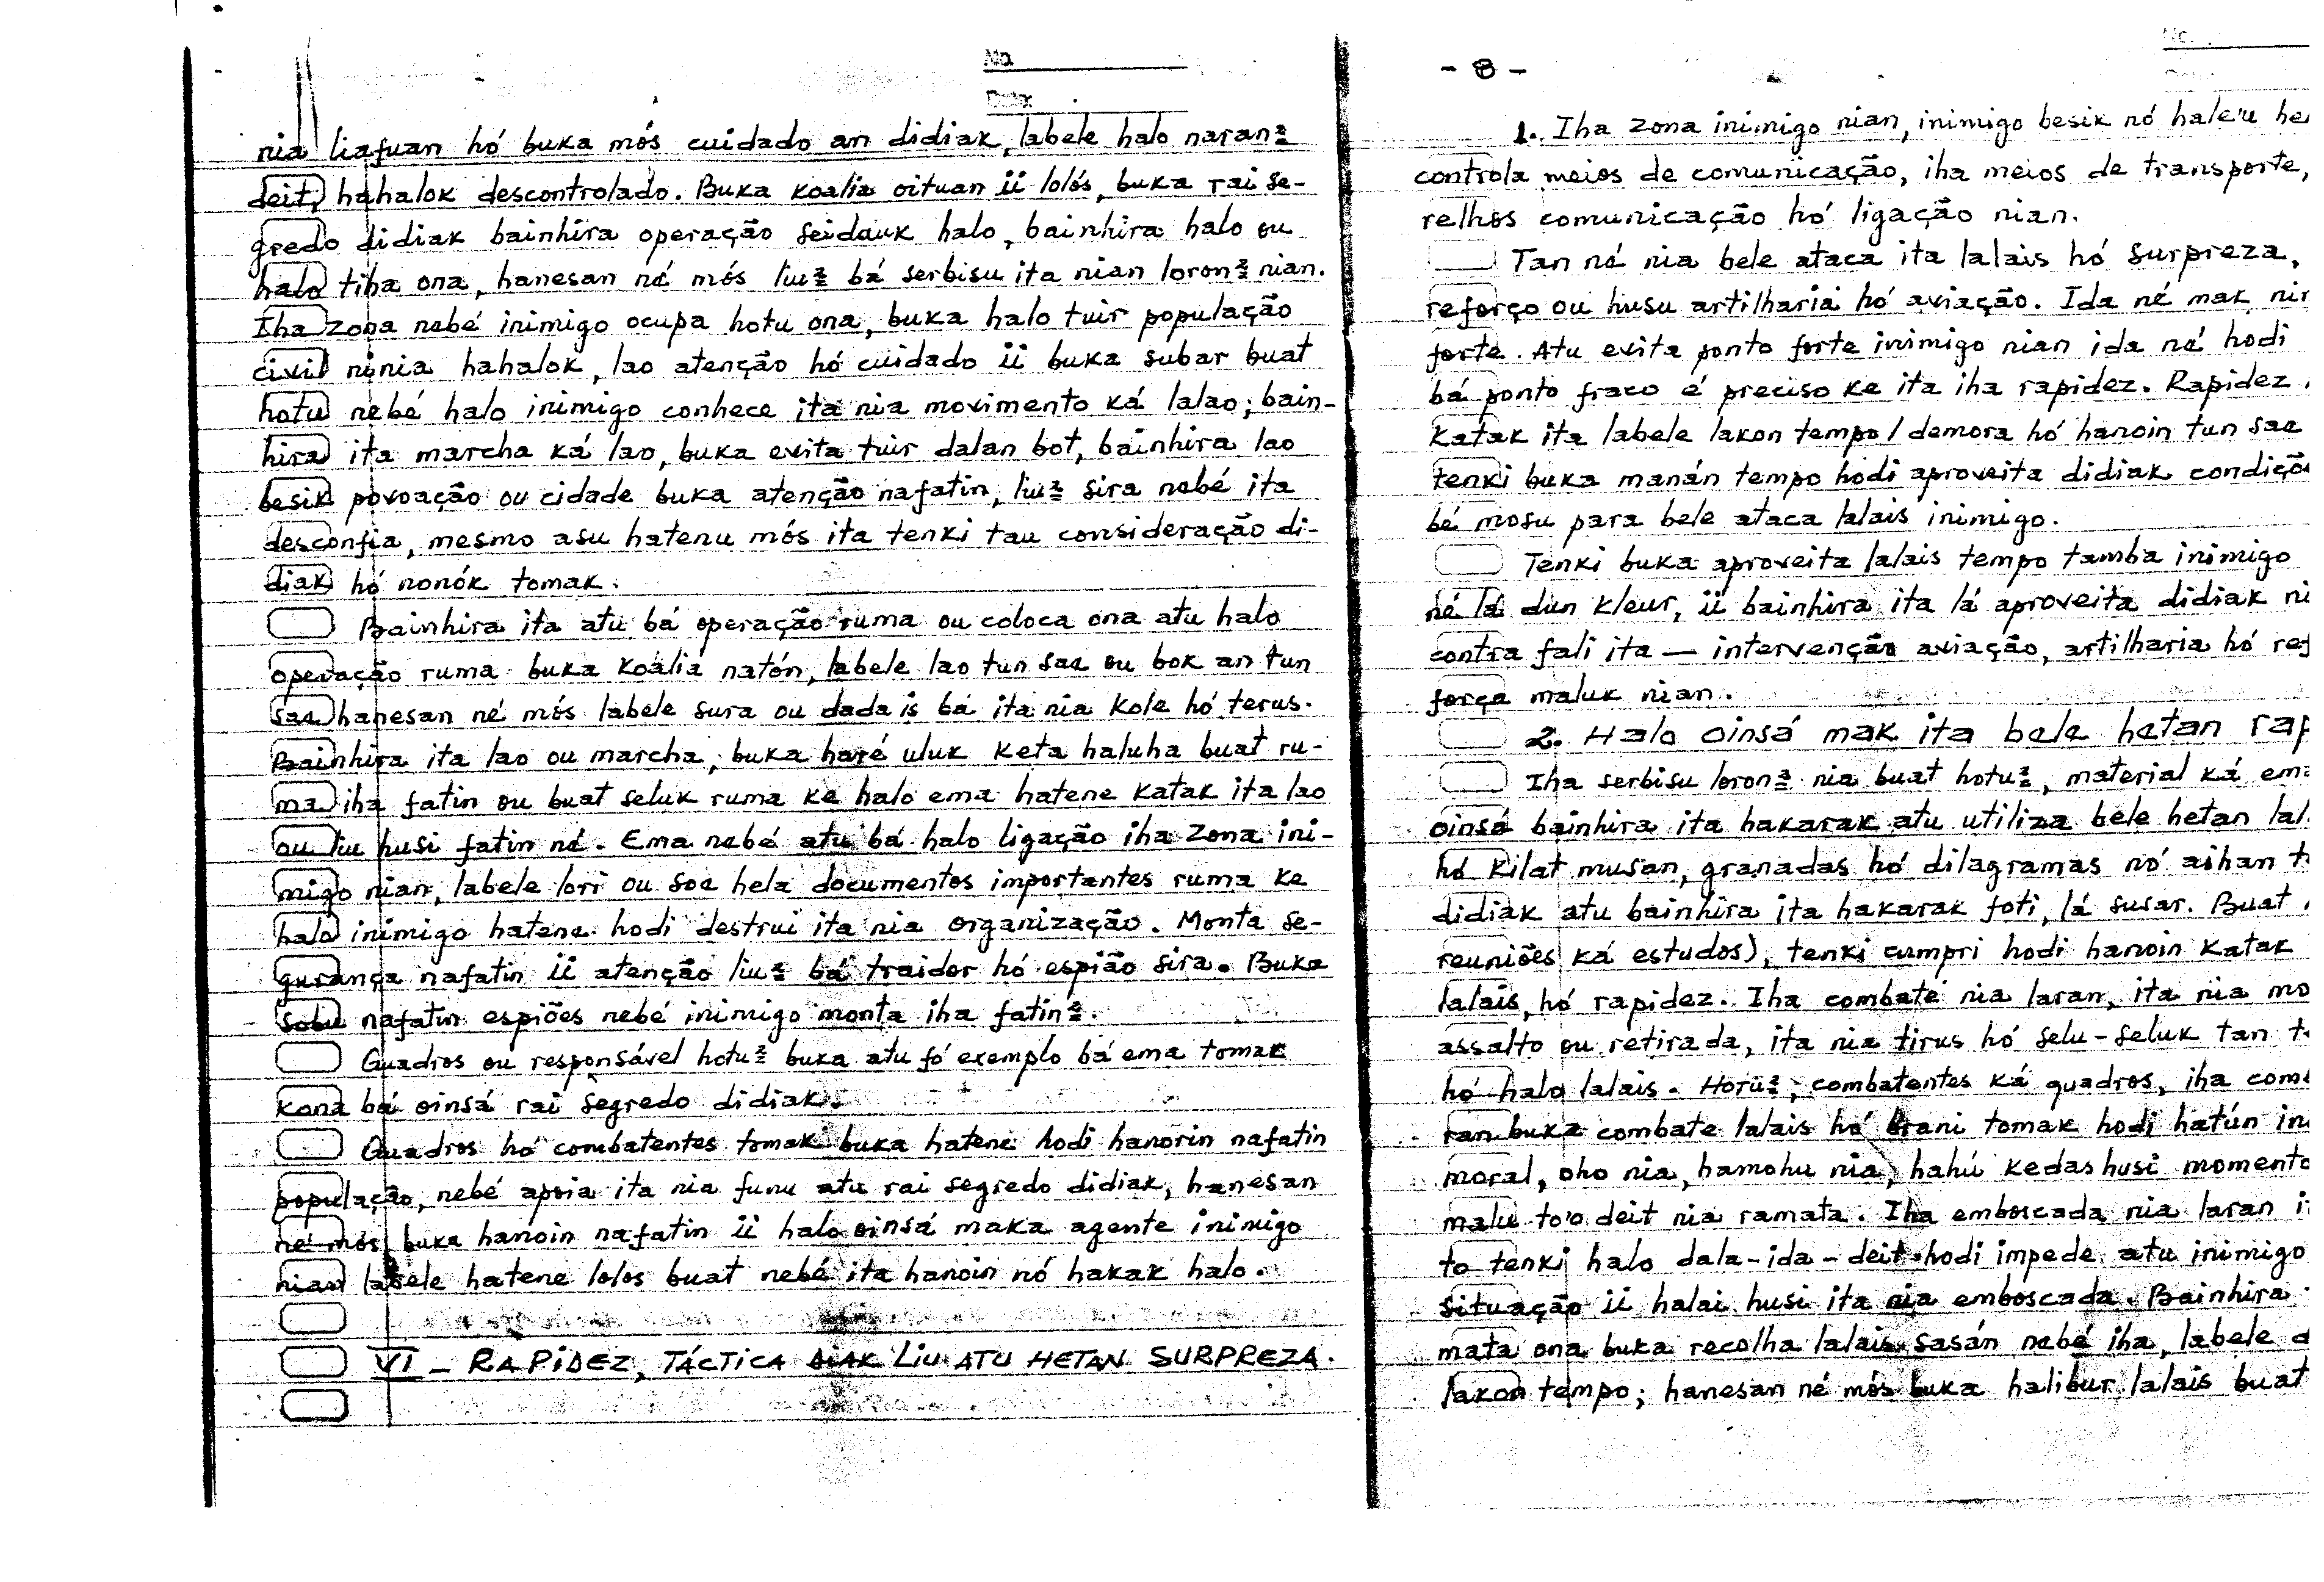 No.
Date:
nia liafuan hó buka mós cuidado an didiak, labele halo naran²
deit, hahalok descontrolado. Buka koalia oituan ii lolós, buka rai se-
gredo didiak bainhira operação seidauk halo, bainhira halo ou
halo tiha ona, hanesan né mós liu² bá serbisu ita nian loron² nian.
Iha zona nebé inimigo ocupa hotu ona, buka halo tuir população
civil ninia hahalok, lao atenção hó cuidado ii buka subar buat
hotu nebé halo inimigo conhece ita nia movimento ká lalao; bain-
hira ita marcha ká lao, buka evita tuir dalan bot, bainhira lao
besik povoação ou cidade buka atenção nafatin, liu² sira nebé ita
desconfia, mesmo asu hatenu mós ita tenki tau consideração di-
diak hó nonók tomak.
Bainhira ita atu bá operação ruma ou coloca ona atu halo
operação ruma buka koalia natón, labele lao tun sae ou bok an tun
sae hanesan né mós labele sura ou dada is bá ita nia kole hó terus.
Bainhira ita lao ou marcha, buka haré uluk keta haluha buat ru-
ma iha fatin ou buat seluk ruma ke halo ema hatene katak ita lao
ou liu husi fatin né. Ema nebé atu bá halo ligação iha zona ini-
migo nian, labele lori ou soe hela documentos importantes ruma ke
halo inimigo hatene hodi destrui ita nia organização. Monta se-
gurança nafatin ii atenção liu² bá traidor hó espião sira. Buka
sobu nafatin espiões nebé inimigo monta iha fatin².
Quadros ou responsável hotu² buka atu fó exemplo bá ema tomak
kona bá oinsá rai segredo didiak.
Quadros hó combatentes tomak buka hatene hodi hanorin nafatin
população, nebé apoia ita nia funu atu rai segredo didiak, hanesan
né mós buka hanoin nafatin ii halo oinsá maka agente inimigo
nian labele hatene lolos buat nebé ita hanoin nó hakak halo.
VI - RAPIDEZ, TÁCTICA DIAK LIU ATU HETAN SURPREZA.
No.
- 8 -
1. Iha zona inimigo nian, inimigo besik nó hale'u he
controla meios de comunicação, iha meios de transporte,
relhos comunicação hó ligação nian.
Tan né nia bele ataca ita lalais hó surpreza,
reforço ou husu artilharia hó aviação. Ida né mak nir
forte. Atu evita ponto forte inimigo nian ida né hodi
bá ponto fraco é preciso ke ita iha rapidez. Rapidez
katak ita labele lakon tempo/demora hó hanoin tún sae
tenki buka manán tempo hodi aproveita didiak condiçõe
bé mosu para bele ataca lalais inimigo.
Tenki buka aproveita lalais tempo tamba inimigo
né lá dún kleur, ii bainhira ita lá aproveita didiak ni
contra fali ita — intervenção aviação, artilharia hó ref
força maluk nian.
2. Halo oinsá mak ita bele hetan rap
Iha serbisu loron² nia buat hotu², material ká ema
oinsá bainhira ita hakarak atu utiliza bele hetan lal
hó kilat musan, granadas hó dilagramas nó aihan t
didiak atu bainhira ita hakarak foti, lá susar. Buat
reuniões ká estudos), tenki cumpri hodi hanoin katak
lalais, hó rapidez. Iha combate nia laran, ita nia mo
assalto ou retirada, ita nia tirus hó selu-seluk tan t
hó halo lalais. Hotu², combatentes ká quadros, iha com
ran buka combate lalais hó brani tomak hodi hatún in
moral, oho nia, hamohu nia, hahú kedas husi momento
malu to'o deit nia ramata. Iha emboscada nia laran i
to tenki halo dala-ida-deit hodi impede atu inimigo
situação ii halai husi ita nia emboscada. Bainhira
mata ona buka recolha lalais sasán nebé iha, labele d
lakon tempo; hanesan né mós buka halibur lalais buat